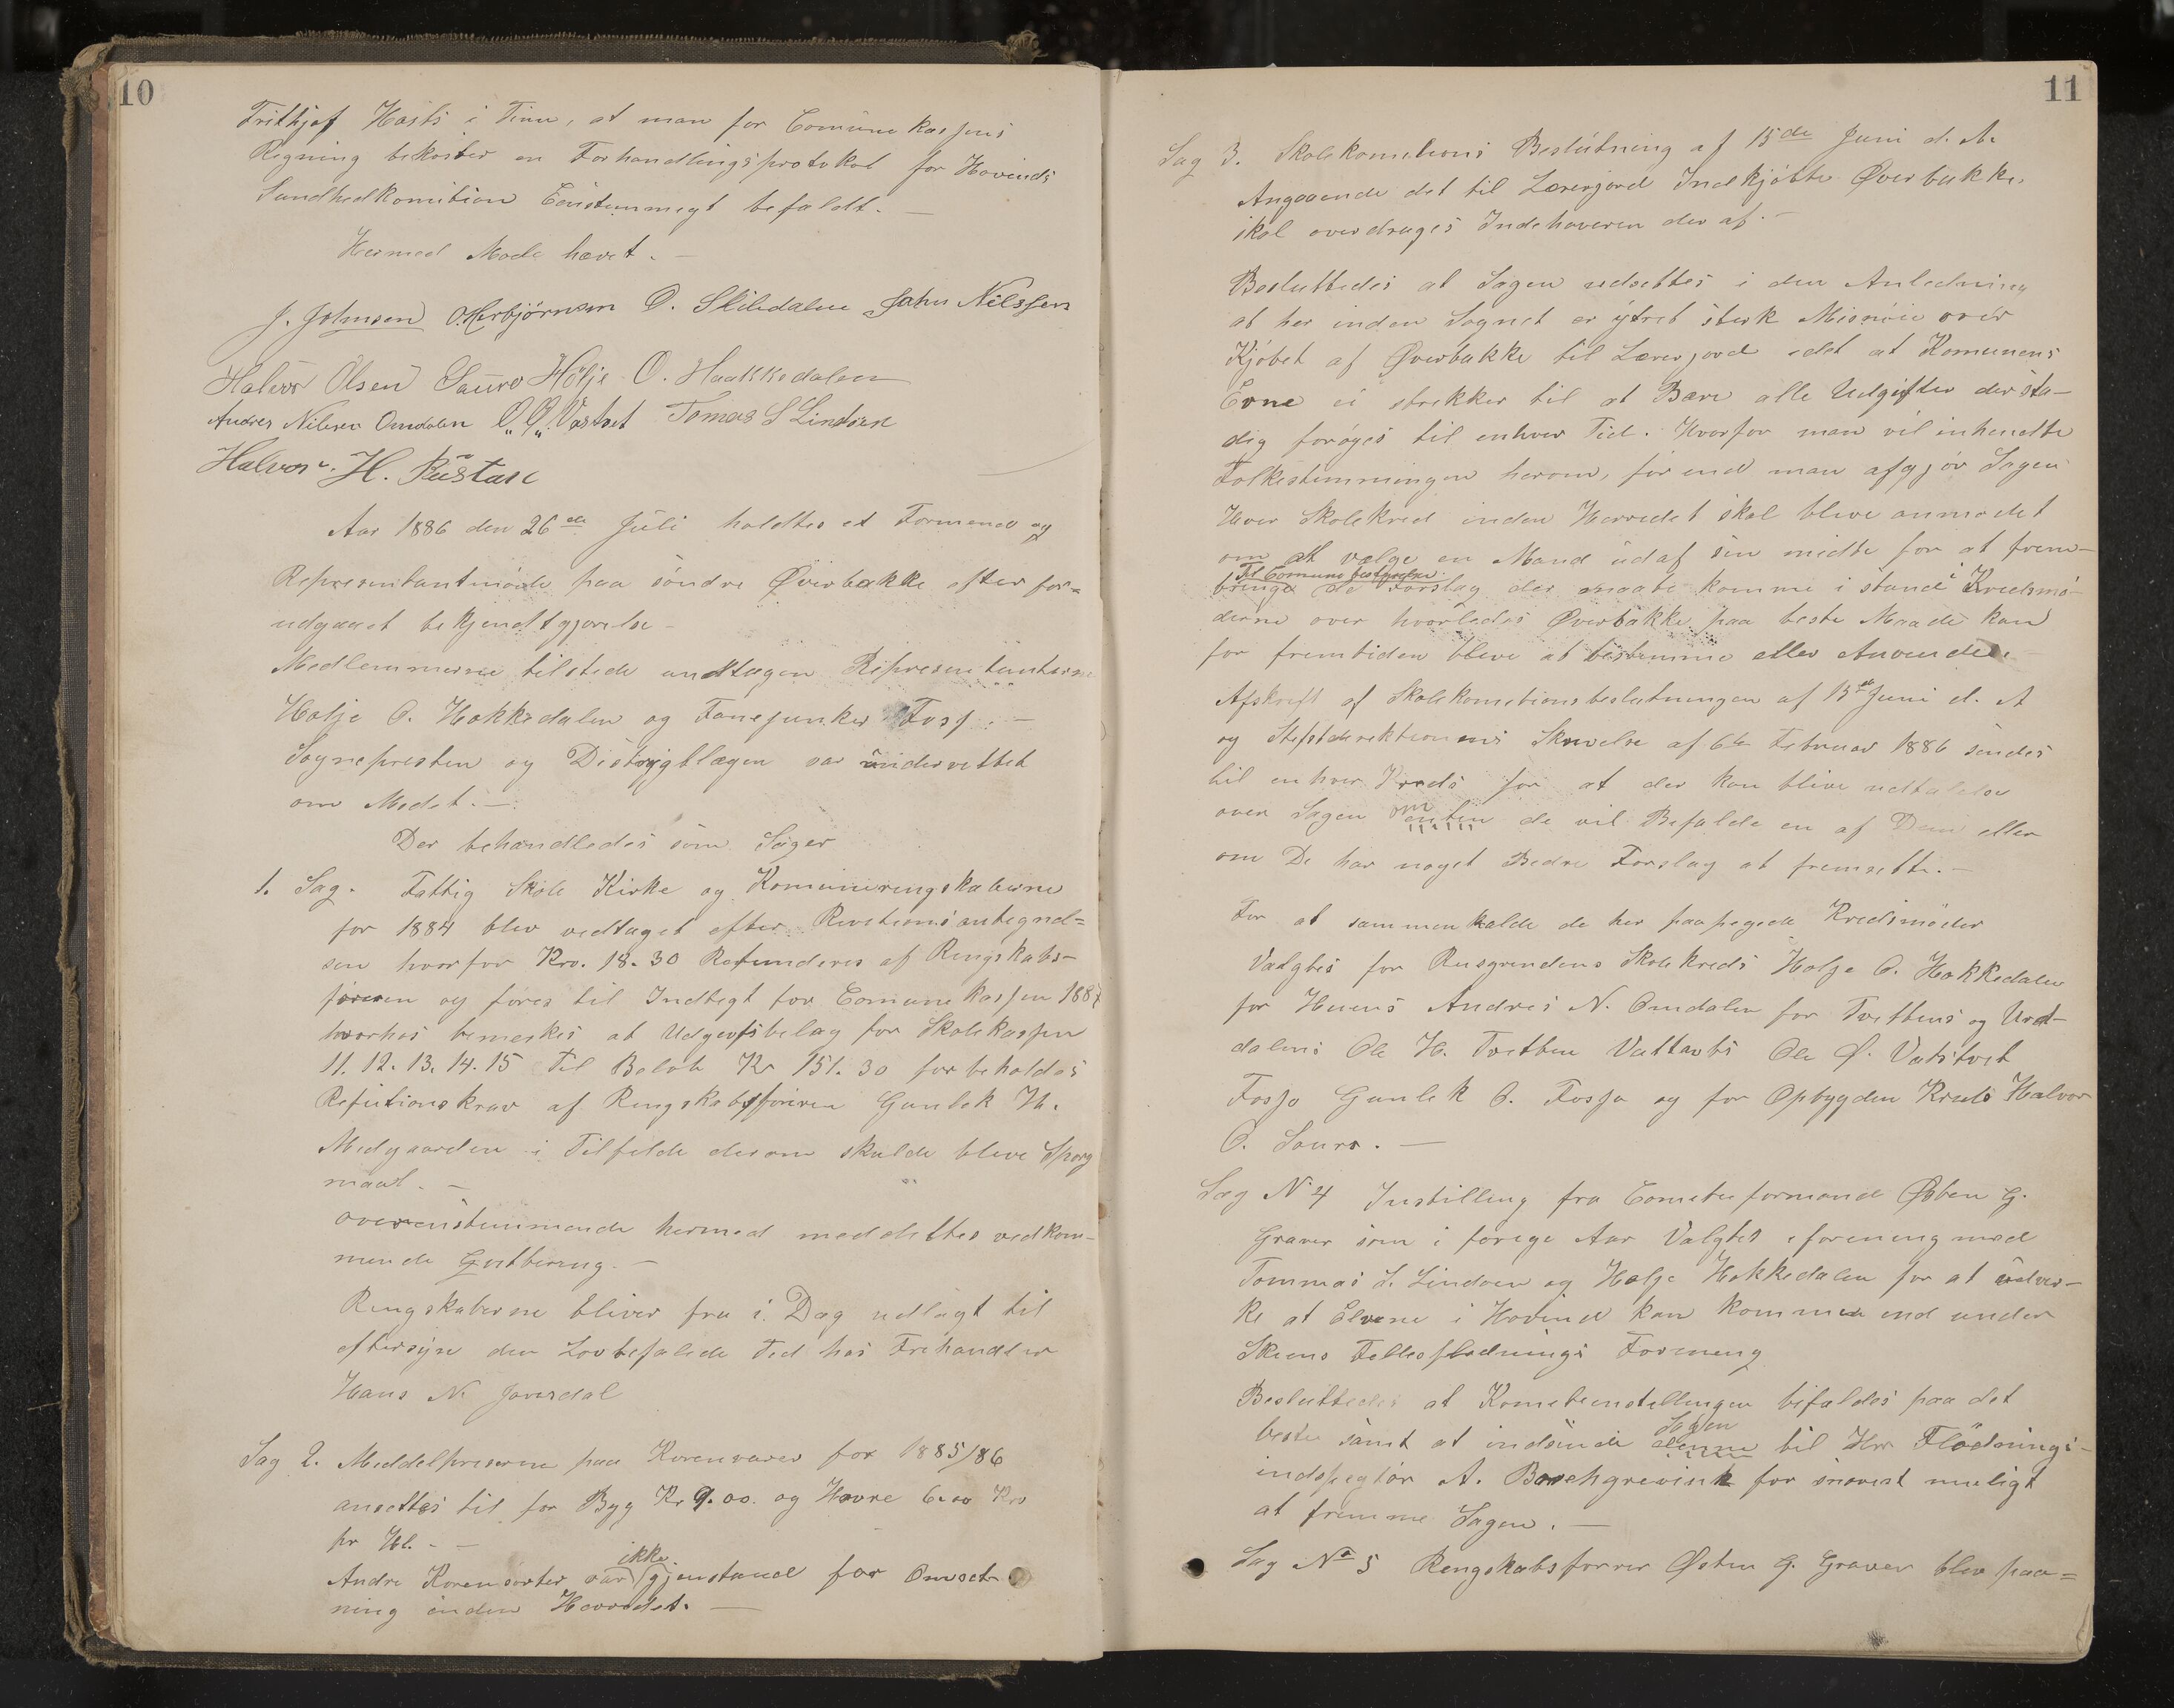 10
Frithjof Hasts i Tinn, at man for Comunekassens
Regning bekoster en Forhandlingsprotokol for Hovinds
Sundhedkomition Eenstemmegt befaldt. —
Hermed Mode hævet. —
J. Johnsen O. Herbjörnsen O. Slibdalen John Nilssen
Halvor Olsen Sauro Hölje O. Haakkedalen
Andres Nilsen Omdalen O. O. Vastvet Tomas S Lindsen
Halvor. H. Rustad
Aar 1886 den 26de Juli holdtes et Formend og
Representantmöde paa söndre Øverbakke efter for=
udgaaet bekjendtgjorelse —
Medlemmerne tilstede undtagen Representanterne
Holje O. Hakkedalen og Fanejunker Fosz. —
Sognepresten og Distrigtlægen var undervettet
om Modet. —
Der behandledes som Sager
1. Sag. Fattig Skole Kirke og Komunerengskaberne
for 1884 blev vedtaget efter Revitionsantegnel=
sen hvorfor Kro. 18.30 Refunderes af Rengskabs-
föreren og fores til Indtegt for Comunekassen 1887
hvorhos bemerkes at Udgevtsbelag for Skolekassen
11. 12. 13. 14. 15 Til Belöb Kr 151.30 forbeholdes
Refutionskrav af Rengskabsföreren Gunlek H.
Medgaarden i Tilfelde derom skulde bleve Sporg
maal. —
overenstemmende hermed meddeltes vedkom-
mende Qvitbering. —
Rengskaberne bliver fra i Dag udlagt til
eftersyn den Lovbefalede Ted hos Frihandler
Hans N. Jovsdal
Sag 2. Meddelpreserne paa Korenvarer for 1885/86
ansettes til for Byg Kr 9.00. og Havre 6.00 Kro
pr Hl. — —
ikke
Andre Korensorter var gjenstand for Omset-
ning inden Herredet. —
11
Sag 3. Skolekomitions Beslutning af 15de Juni d. A.
Angaaende det til Lærerjord Indkjöbte Øverbakke,
skal overdrages Indehaveren der af. —
Besluttedes at Sagen udsettes i den Anledning
at her inden Sognet er ytret sterk Misnöie over
Kjöbet af Øverbakke til Lærerjord idet at Komunens
Evne ei strekker til at Bære alle Udgifter der sta-
dig foröges til enhver Tid. Hvorfor man vil inhendte
Folkestemningen herom, för end man afgjör Sagen
Hver Skolekred inden Herredet skal bleve anmodet
om at vælge en Mand udaf sin midte for at frem-
Til Comunebestyrelsen
bringe de Forslag der maate komme i stand i Kredsmö-
derne over hvorledes Øverbakke paa beste Maade kan
for fremtiden bleve at bestemme eller Anvendes. —
Afskreft af Skolekomitionsbeslutningen af 15de Juni d. A
og Steftderektionens Skrevelse af 6te Februar 1886 sendes
til enhver Kreds for at der kan blive udtalelse
over Sagen om de vil Befalde en af Dem eller
om De har noget Bedre Forslag at fremsette. —
For at sammenkalde de her paapegede Kredsmöder
Valgtes for Busgrendens Skolekreds Holje O. Hakkedalen
for Huens Andres N. Omdalen for Tvettens og Urd-
dalens Ole H. Tvetten Vattavts Ole O. Vatstvet
Fosso Gunlek O. Fosso og for Opbygden Kreds Halvor
O. Sauro. —
Sag No 4 Instilling fra Cometeformand Østen G.
Graver som i forege Aar Valgtes i forening med
Tommas S. Lindsen og Holje Hakkedalen for at udvir-
ke at Elvene i Hovind kan komme ind under
Skiens Fellesflödnings Forening
Besluttedes at Kometeenstellingen bifaldes paa det
beste samt at indsende Sagen til Hr Flödnings-
indspegtör A. Borchgrevink for snarest muligt
at fremme Sagen. —
Sag No 5 Rengskabsforrer Østen G. Graver blev paa=